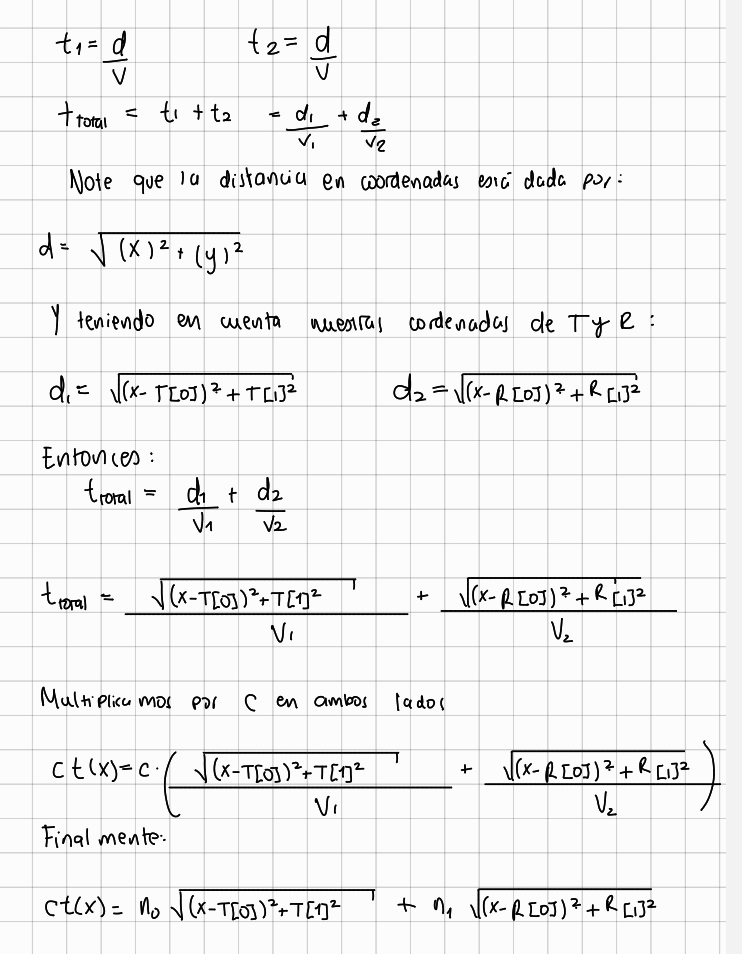 t₁ = d/v t₂ = d/v
t total = t₁ + t₂ = d₁/v₁ + d₂/v₂
Note que la distancia en coordenadas está dada por:
d = √((x)² + (y)²)
Y teniendo en cuenta nuestras cordenadas de T y R :
d₁ = √((x - T[0])² + T[1]²) d₂ = √((x - R[0])² + R[1]²)
Entonces :
t total = d₁/v₁ + d₂/v₂
t total = √((x-T[0])²+T[1]²)/V₁ + √((x-R[0])²+R[1]²)/V₂
Multiplicamos por c en ambos lados
c t(x) = c · ( √((x-T[0])²+T[1]²)/V₁ + √((x-R[0])²+R[1]²)/V₂ )
Finalmente:
ct(x) = n₀ √((x-T[0])²+T[1]²) + n₁ √((x-R[0])²+R[1]²)